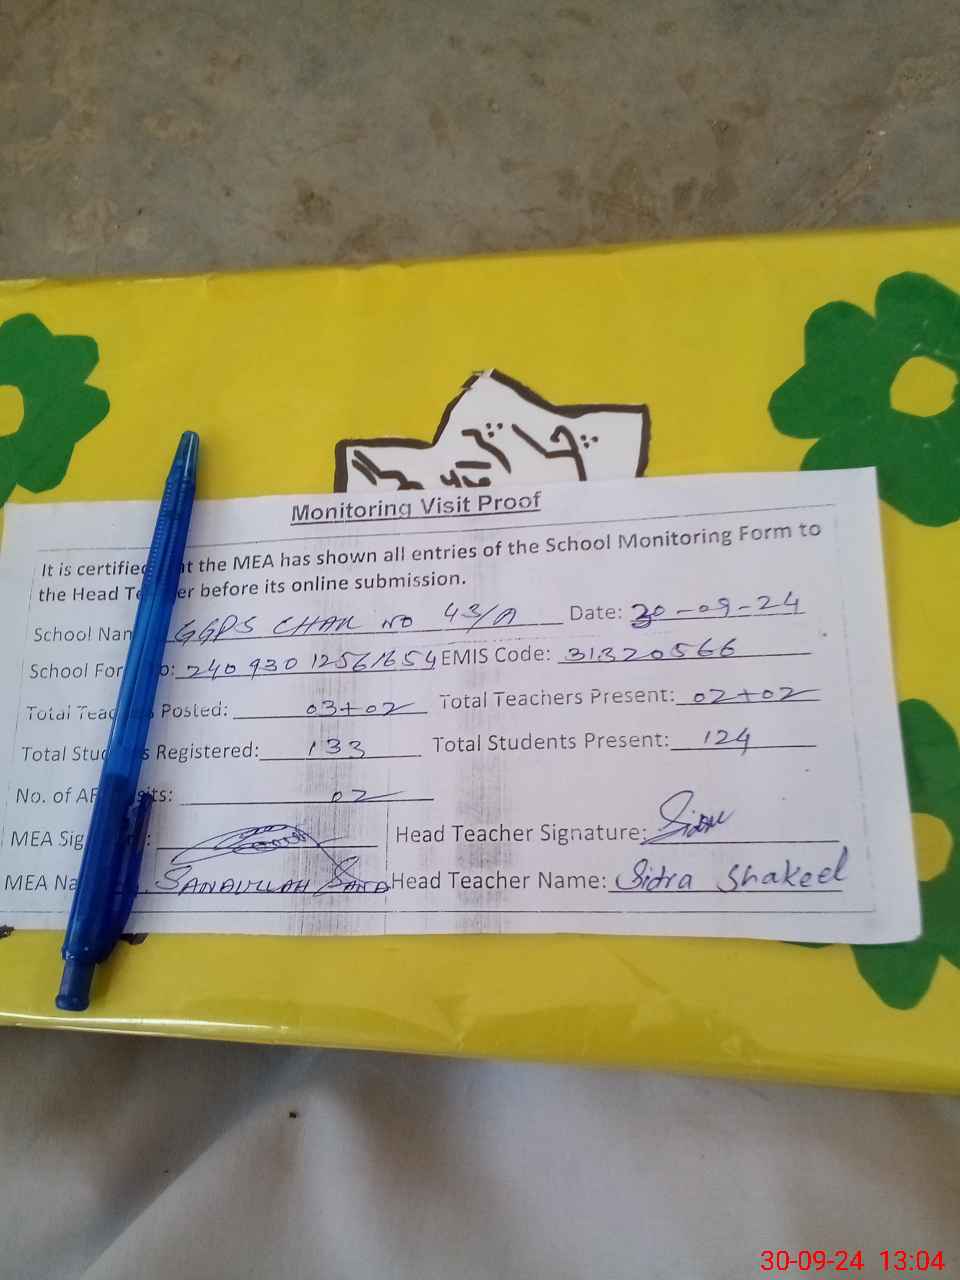 Monitoring Visit Proof
It is certified that the MEA has shown all entries of the School Monitoring Form to
the Head Teacher before its online submission.
School Nam GGPS CHAK NO 43/A Date: 30-09-24
School For o: 24093012561654 EMIS Code: 31320566
Total Teac s Posted: 03+02 Total Teachers Present: 02+02
Total Stud s Registered: 133 Total Students Present: 124
No. of AE sits: 02
MEA Sig : Head Teacher Signature: Sidra
MEA Na SANAULLAH SANA Head Teacher Name: Sidra Shakeel
30-09-24 13:04